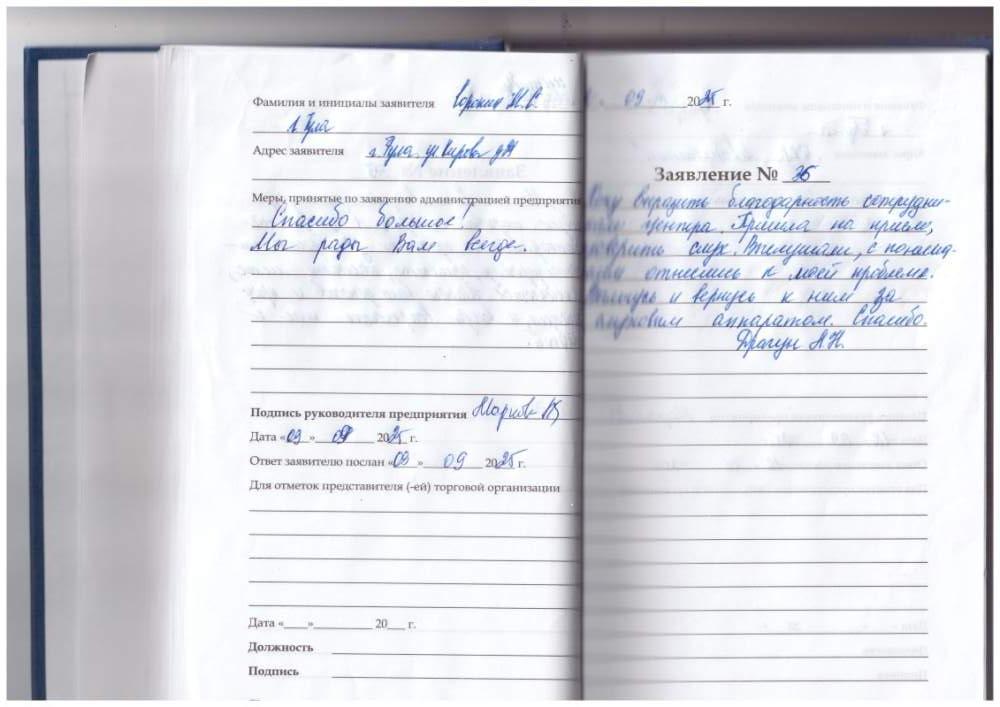 Фамилия и инициалы заявителя Воронин Ж.С.
г. Тула
Адрес заявителя г. Тула ул Кирова
Меры, принятые по заявлению администрацией предприятия
Спасибо большое!
Мы рады Вам всегда.
Подпись руководителя предприятия
Дата «09» 09 2025 г.
Ответ заявителю послан «09» 09 2025 г.
Для отметок представителя (-ей) торговой организации
Дата «____»__________ 20___ г.
Должность
Подпись
09 2025 г.
Заявление № 36
Хочу выразить благодарность сотрудни-
центра. Пришла на прием,
слух. Выслушали, с понима-
отнеслись к моей проблеме.
и вернусь к ним за
слуховым аппаратом. Спасибо.
Драгун А.Н.